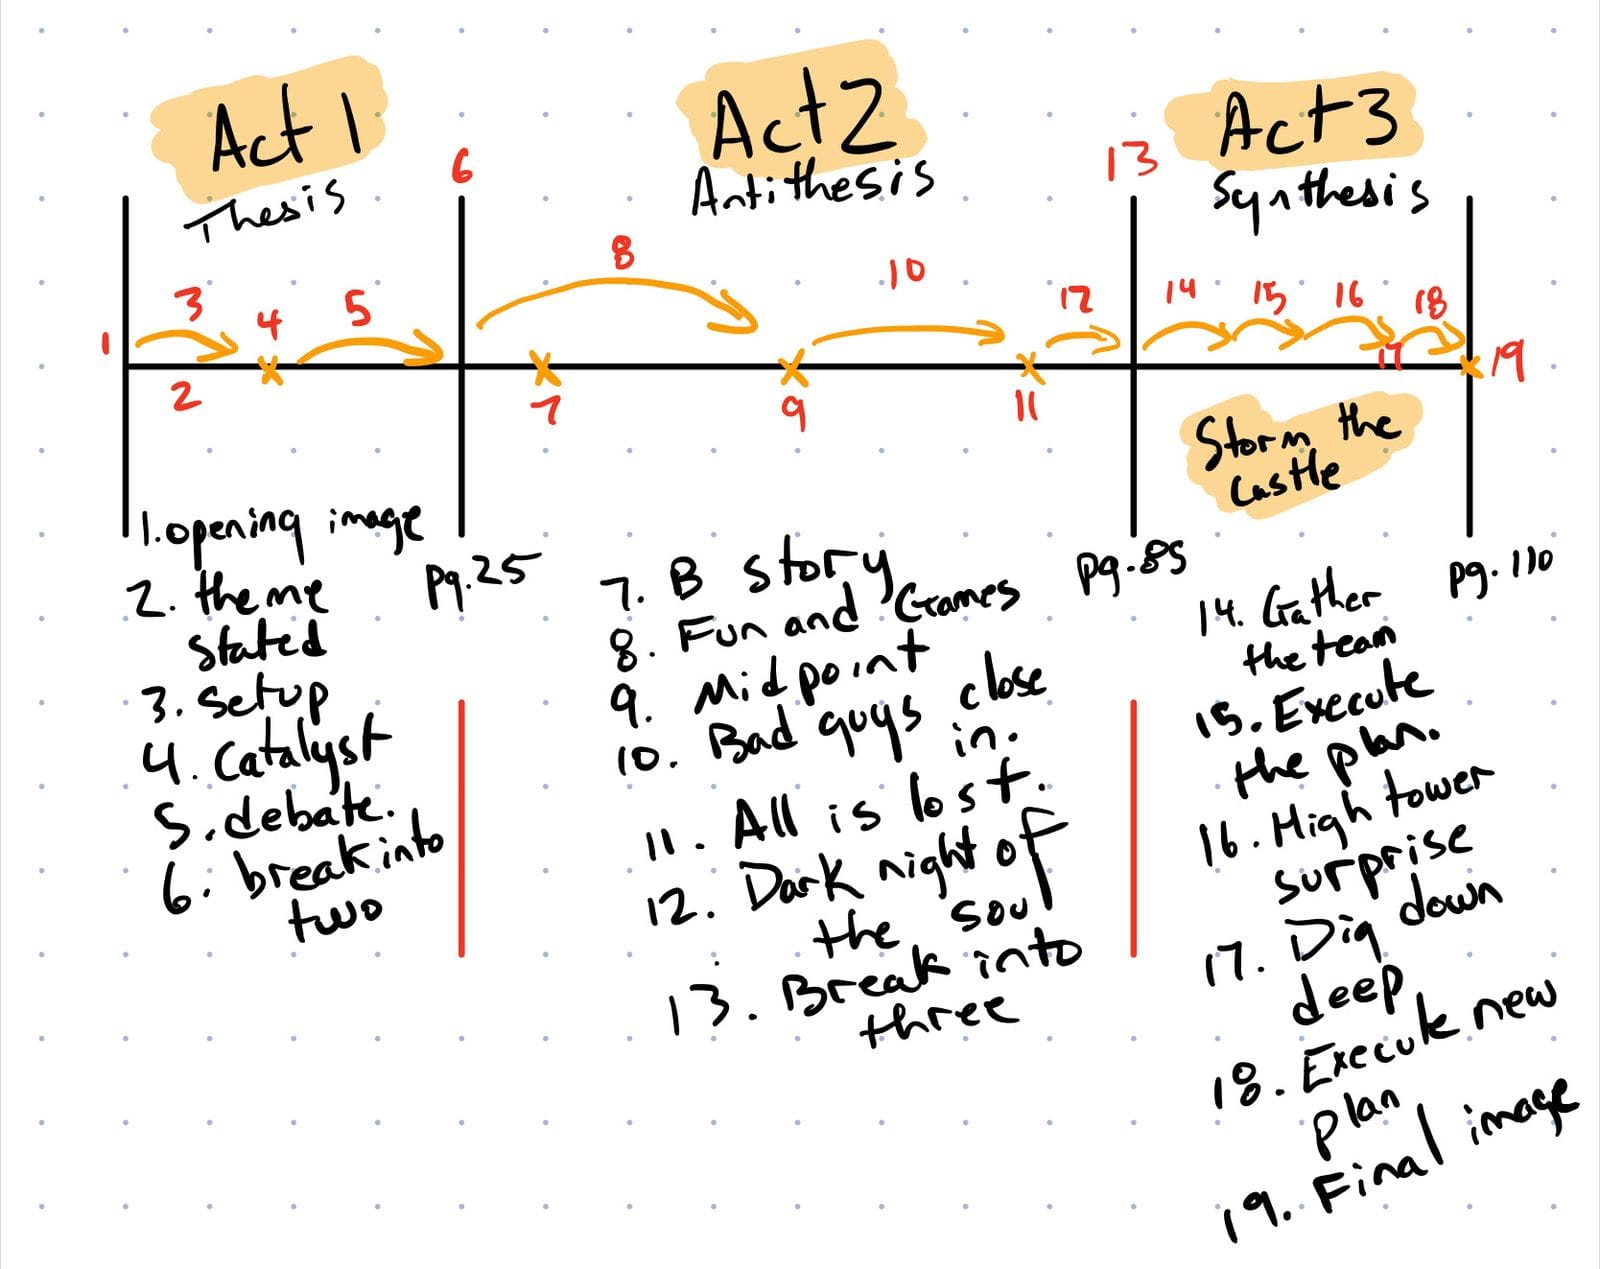 Act 1
Thesis
Act 2
Antithesis
Act 3
Synthesis
6
13
8
10
3
4
5
12
14
15
16
18
1
2
7
9
11
17
19
Storm the
Castle
1. opening image
2. theme
stated
3. setup
4. Catalyst
5. debate.
6. break into
two
pg. 25
7. B story
8. Fun and Games
9. Midpoint
10. Bad guys close
in.
11. All is lost.
12. Dark night of
the soul
13. Break into
three
pg. 85
14. Gather
the team
15. Execute
the plan.
16. High tower
surprise
17. Dig down
deep
18. Execute new
plan
19. Final image
pg. 110